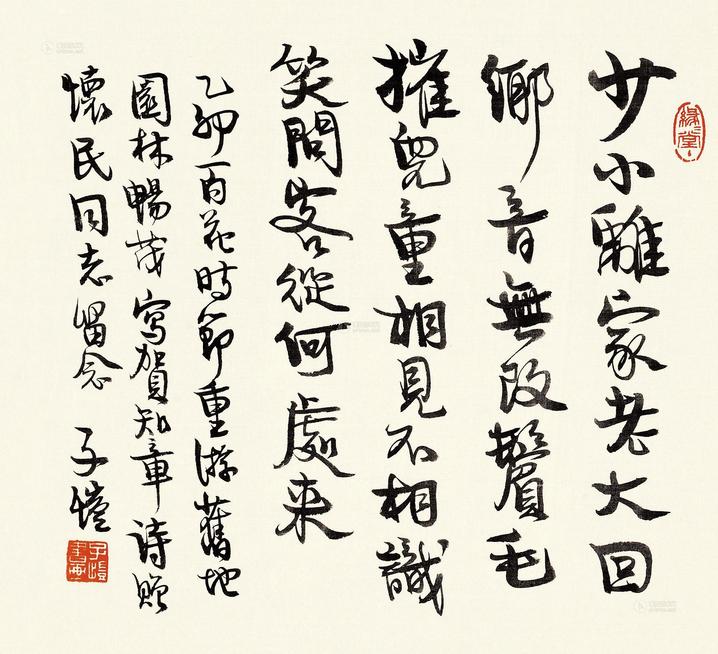 緣堂
少小離家老大回
鄉音無改鬢毛
摧兒童相見不相識
笑問客從何處来
乙卯百花時節重游舊地
園林暢茂寫賀知章詩贈
懷民同志留念 子愷
子愷書画